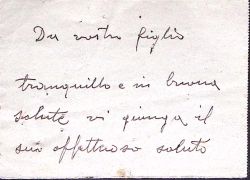 Da vostro figlio
tranquillo e in buona
salute vi giunga il
suo affettuoso saluto